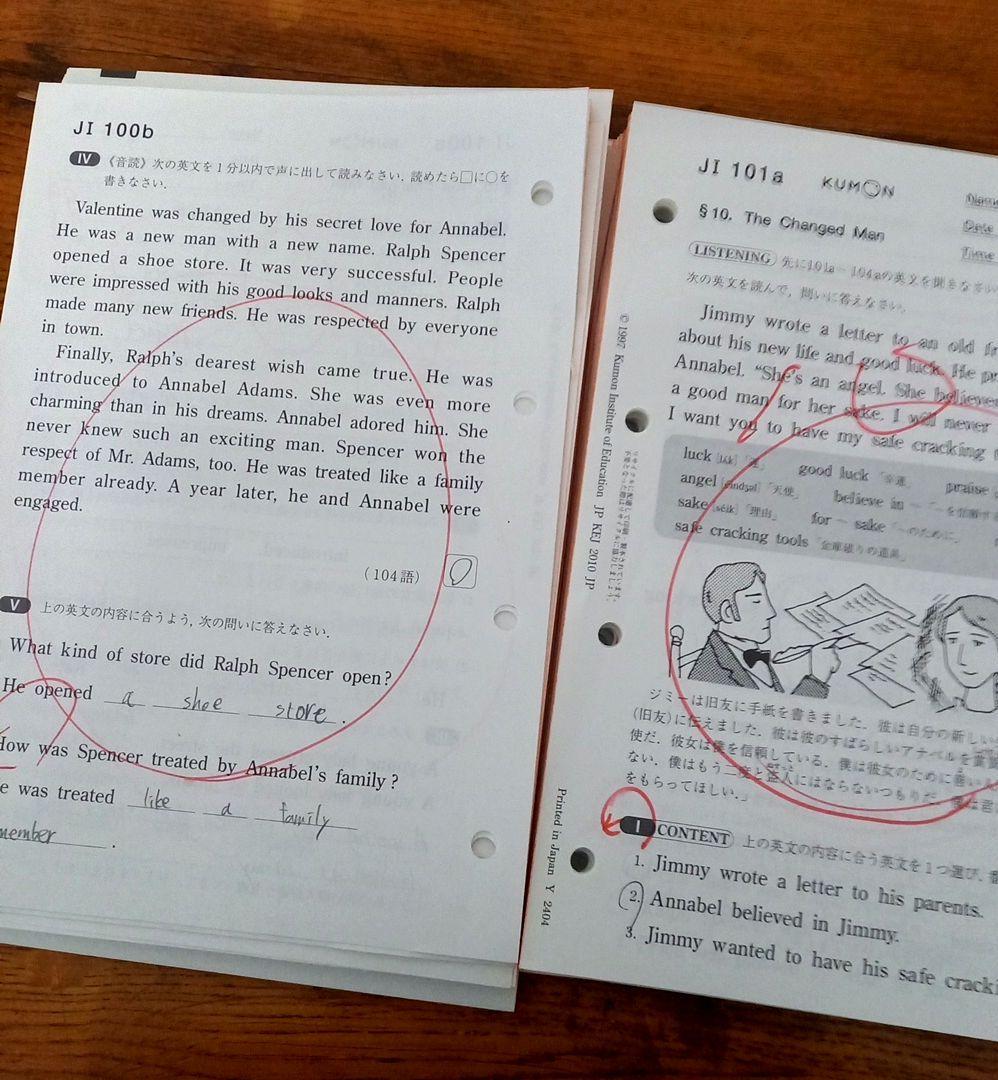 JI 100b
IV 《音読》次の英文を1分以内で声に出して読みなさい. 読めたら□に○を
書きなさい.
Valentine was changed by his secret love for Annabel.
He was a new man with a new name. Ralph Spencer
opened a shoe store. It was very successful. People
were impressed with his good looks and manners. Ralph
made many new friends. He was respected by everyone
in town.
Finally, Ralph's dearest wish came true. He was
introduced to Annabel Adams. She was even more
charming than in his dreams. Annabel adored him. She
never knew such an exciting man. Spencer won the
respect of Mr. Adams, too. He was treated like a family
member already. A year later, he and Annabel were
engaged.
(104語)
V 上の英文の内容に合うよう, 次の問いに答えなさい.
What kind of store did Ralph Spencer open?
He opened a shoe store.
How was Spencer treated by Annabel's family?
e was treated like a family
member.
JI 101a KUMON
Date
Time
§10. The Changed Man
LISTENING 先に101a~104aの英文を聞きなさい
次の英文を読んで, 問いに答えなさい.
Jimmy wrote a letter to an old fr
about his new life and good luck. He pr
Annabel. "She's an angel. She believes
a good man for her sake. I will never
I want you to have my safe cracking t
luck [lʌk]「運」 good luck「幸運」 praise
angel [éindʒəl]「天使」 believe in ~「~を信頼す
sake [séik]「理由」 for ~ sake「~のために」
safe cracking tools「金庫破りの道具」
ジミーは旧友に手紙を書きました. 彼は自分の新しい
(旧友)に伝えました. 彼は彼のすばらしいアナベルを賞賛
使だ. 彼女は僕を信頼している. 僕は彼女のために善い人
ない. 僕はもう二度と盗人にはならないつもりだ. 僕は君
をもらってほしい.」
I CONTENT 上の英文の内容に合う英文を1つ選び, 番
1. Jimmy wrote a letter to his parents.
2. Annabel believed in Jimmy.
3. Jimmy wanted to have his safe cracki
© 1997 Kumon Institute of Education JP KEJ 2010 JP
Printed in Japan Y 2404